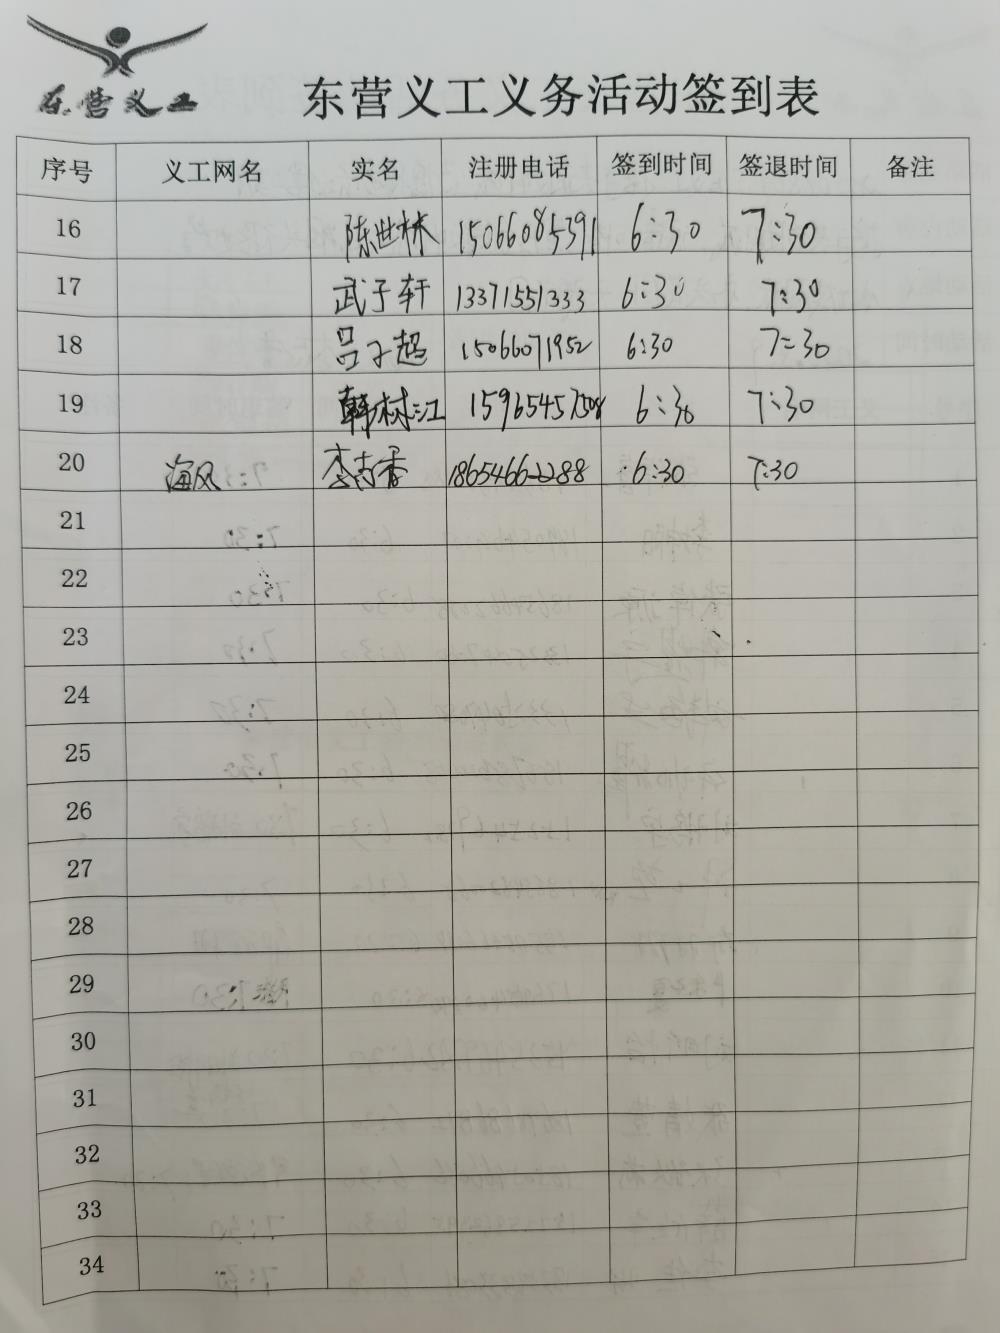 东营义工
东营义工义务活动签到表
序号 义工网名 实名 注册电话 签到时间 签退时间 备注
16 陈世林 15066085391 6:30 7:30
17 武子轩 13371551333 6:30 7:30
18 吕子超 15066071952 6:30 7:30
19 韩树江 15965457508 6:30 7:30
20 海风 李志香 18654662288 6:30 7:30
21
22
23
24
25
26
27
28
29
30
31
32
33
34